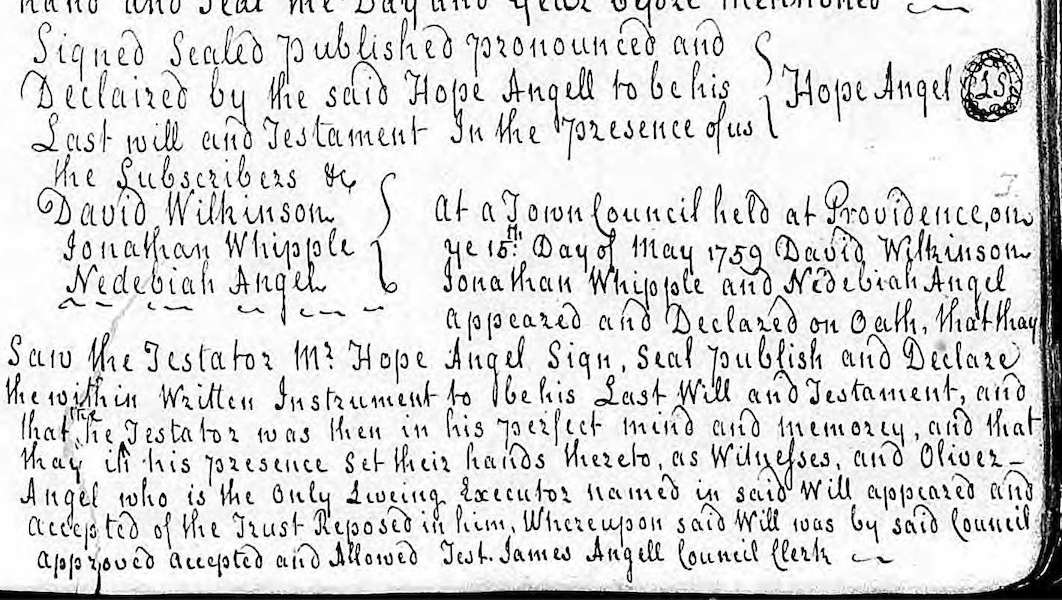 hand and Seal the Day and year before mentioned
Signed Sealed published pronounced and
Declaired by the said Hope Angell to be his
Last will and Testament In the presence of us
Hope Angel LS
the Subscribers &c
David Wilkinson
Jonathan Whipple
Nedebiah Angel
At a Town Council held at Providence, on
ye 15th Day of May 1759 David Wilkinson
Jonathan Whipple and Nedebiah Angel
appeared and Declared on Oath, that thay
Saw the Testator Mr. Hope Angel Sign, Seal publish and Declare
the within Written Instrument to be his Last Will and Testament, and
that the Testator was then in his perfect mind and memorey, and that
thay in his presence Set their hands thereto, as Witnesses, and Oliver
Angel who is the Only Liveing Executor named in said Will appeared and
accepted of the Trust Reposed in him, Whereupon said Will was by said Council
approved accepted and Allowed Test. James Angell Council Clerk